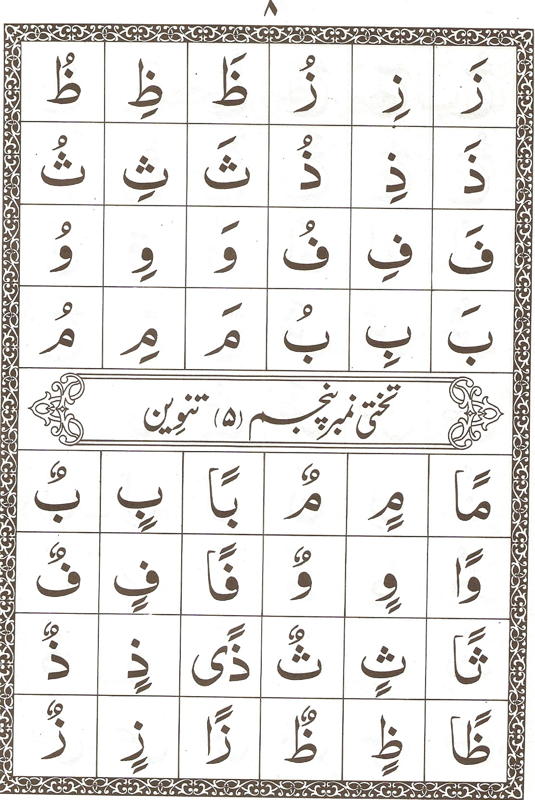 ۸
زَ زِ زُ ظَ ظِ ظُ
ذَ ذِ ذُ ثَ ثِ ثُ
فَ فِ فُ وَ وِ وُ
بَ بِ بُ مَ مِ مُ
تختی نمبر پنجم (۵) تنوین
مًا مٍ مٌ بًا بٍ بٌ
وًا وٍ وٌ فًا فٍ فٌ
ثًا ثٍ ثٌ ذًی ذٍ ذٌ
ظًا ظٍ ظٌ زًا زٍ زٌ